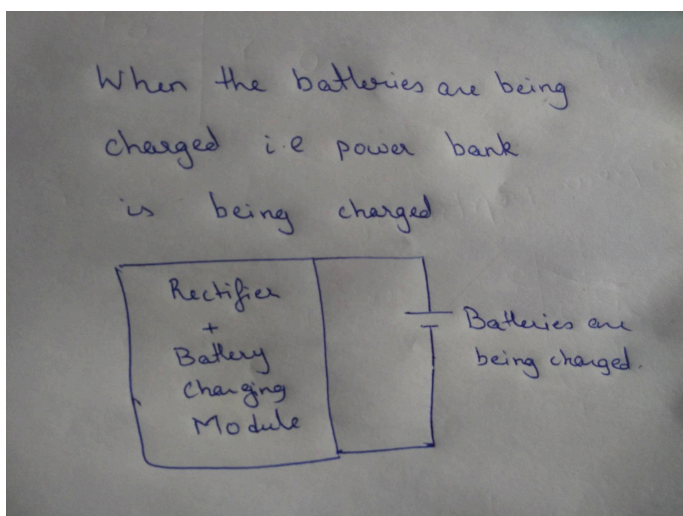 When the batteries are being
charged i.e power bank
is being charged
Rectifier
+
Battery
Charging
Module
Batteries are
being charged.